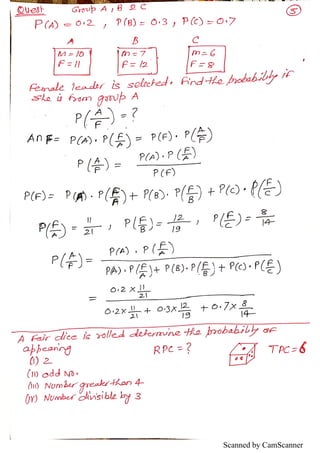 Quest Group A, B & C ⑤
P(A) = 0.2 , P(B) = 0.3 , P(C) = 0.7
A B C
M = 10 M = 7 M = 6
F = 11 F = 12 F = 8
Female leader is selected. Find the probability if
She is from group A
P(A/F) = ?
A∩F = P(A). P(F/A) = P(F). P(A/F)
P(A/F) = P(A). P(F/A) / P(F)
P(F) = P(A). P(F/A) + P(B). P(F/B) + P(C). P(F/C)
P(F/A) = 11/21 , P(F/B) = 12/19 , P(F/C) = 8/14
P(A/F) = P(A) . P(F/A) / P(A). P(F/A) + P(B). P(F/B) + P(C). P(F/C)
= 0.2 x 11/21 / 0.2x 11/21 + 0.3x 12/19 + 0.7x 8/14
A Fair dice is rolled determine the probability of
appearing RPC = ? TPC = 6
(I) 2
(II) odd No.
(III) Number greater than 4
(IV) Number divisible by 3
Scanned by CamScanner